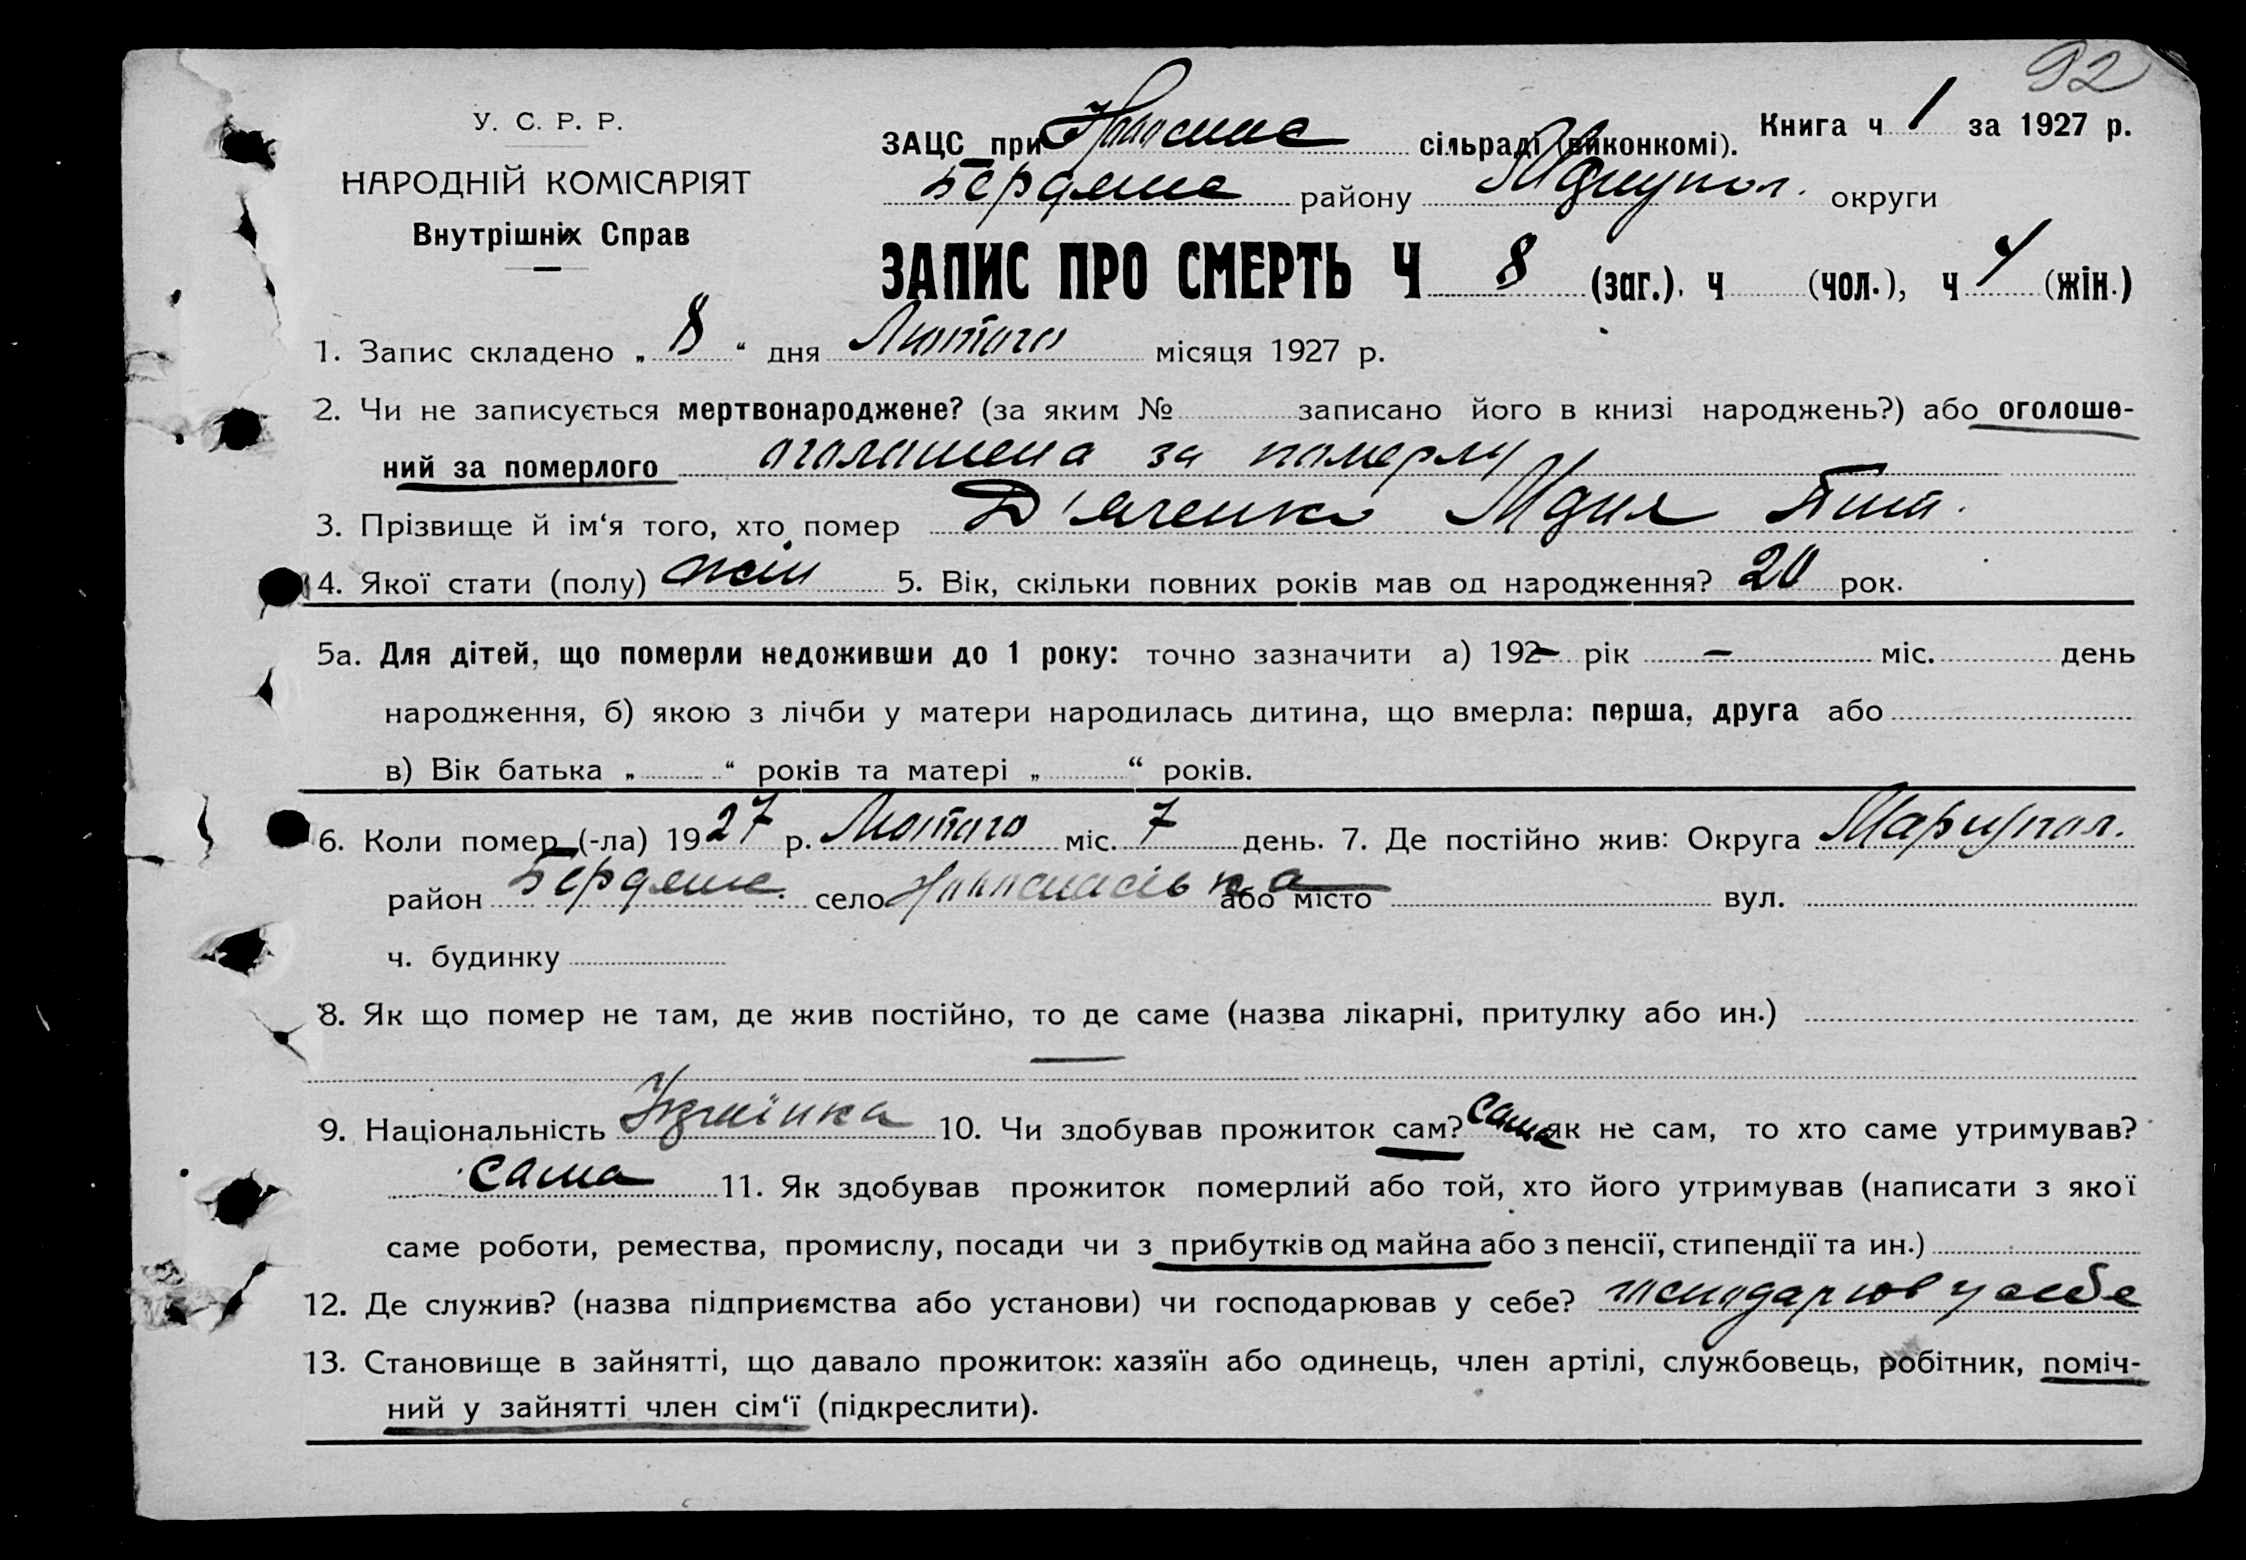 92
У. С. Р. Р.
НАРОДНІЙ КОМІСАРІЯТ
Внутрішніх Справ
ЗАЦС при сільраді (виконкомі). Книга ч 1 за 1927 р.
Бердянс району Маріупол. округи
ЗАПИС ПРО СМЕРТЬ Ч 8 (заг.). ч (чол.), ч 4 (жін.)
1. Запис складено „ 8 “ дня Лютого місяця 1927 р.
2. Чи не записується мертвонароджене? (за яким № записано його в книзі народжень?) або оголоше-
ний за померлого оголошена за померлу
3. Прізвище й ім‘я того, хто помер Д'яченко
4. Якої стати (полу) жін 5. Вік, скільки повних років мав од народження? 20 рок.
5а. Для дітей, що померли недоживши до 1 року: точно зазначити а) 192– рік – міс. день
народження, б) якою з лічби у матери народилась дитина, що вмерла: перша, друга або
в) Вік батька „ “ років та матері „ “ років.
6. Коли помер (-ла) 1927 р. Лютого міс. 7 день. 7. Де постійно жив: Округа Маріупол.
район Бердянс. село або місто вул.
ч. будинку
8. Як що помер не там, де жив постійно, то де саме (назва лікарні, притулку або ин.)
—
9. Національність Українка 10. Чи здобував прожиток сам? сама як не сам, то хто саме утримував?
сама 11. Як здобував прожиток померлий або той, хто його утримував (написати з якої
саме роботи, ремества, промислу, посади чи з прибутків од майна або з пенсії, стипендії та ин.)
12. Де служив? (назва підприємства або установи) чи господарював у себе? господарюв у себе
13. Становище в зайнятті, що давало прожиток: хазяїн або одинець, член артілі, службовець, робітник, поміч-
ний у зайнятті член сім‘ї (підкреслити).